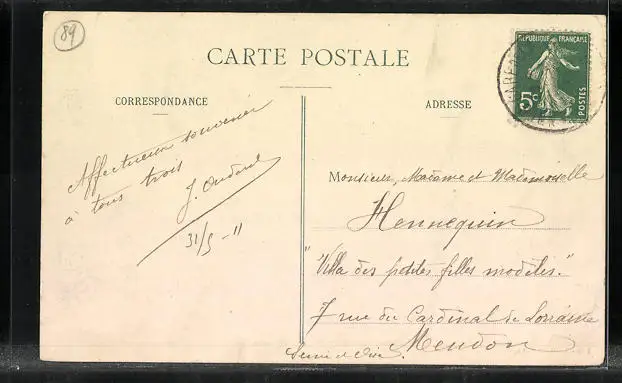 89
CARTE POSTALE
RÉPUBLIQUE FRANÇAISE
5c
POSTES
CORRESPONDANCE
ADRESSE
Affectueux souvenir
à tous trois
J. Oudard
31/5 - 11
Monsieur, Madame et Mademoiselle
Hennequin
"Villa des petites filles modèles."
7 rue du Cardinal de Lorraine
Meudon
Seine et Oise.